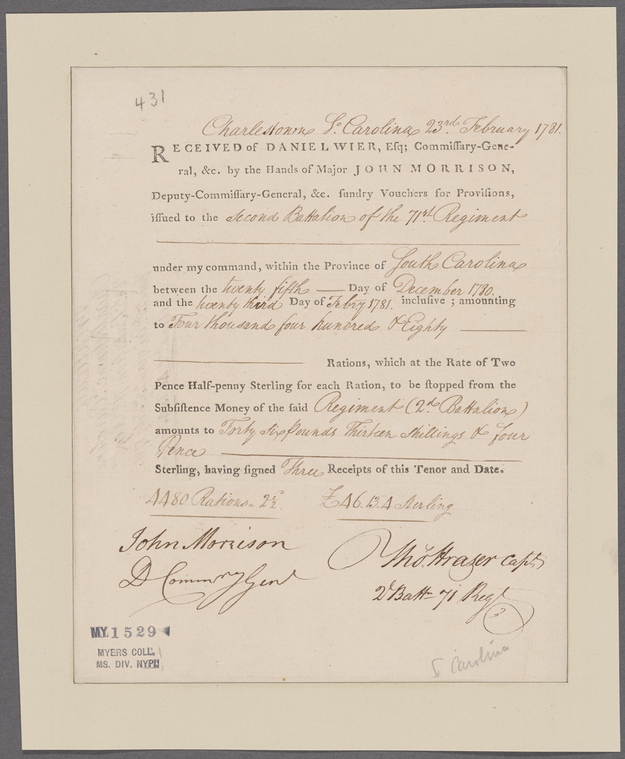 431
Charlestown So. Carolina 23rd. February 1781.
RECEIVED of DANIEL WIER, Esq; Commissary-Gene-
ral, &c. by the Hands of Major JOHN MORRISON,
Deputy-Commissary-General, &c. sundry Vouchers for Provisions,
issued to the Second Battalion of the 71st. Regiment
under my command, within the Province of South Carolina
between the twenty fifth — Day of December 1780.
and the twenty third Day of Febry 1781. inclusive; amounting
to Four thousand four hundred & Eighty
Rations, which at the Rate of Two
Pence Half-penny Sterling for each Ration, to be stopped from the
Subsistence Money of the said Regiment (2d. Battalion)
amounts to Forty Six pounds Thirteen shillings & four
Pence
Sterling, having signed Three Receipts of this Tenor and Date.
4480 Rations - 2½ £46.13.4 Sterling
John Morrison
D Commry Genl
Thos. Frazer Capt
2d Battn 71 Regt
MY 1529
MYERS COLL.
MS. DIV. NYPL
S Carolina